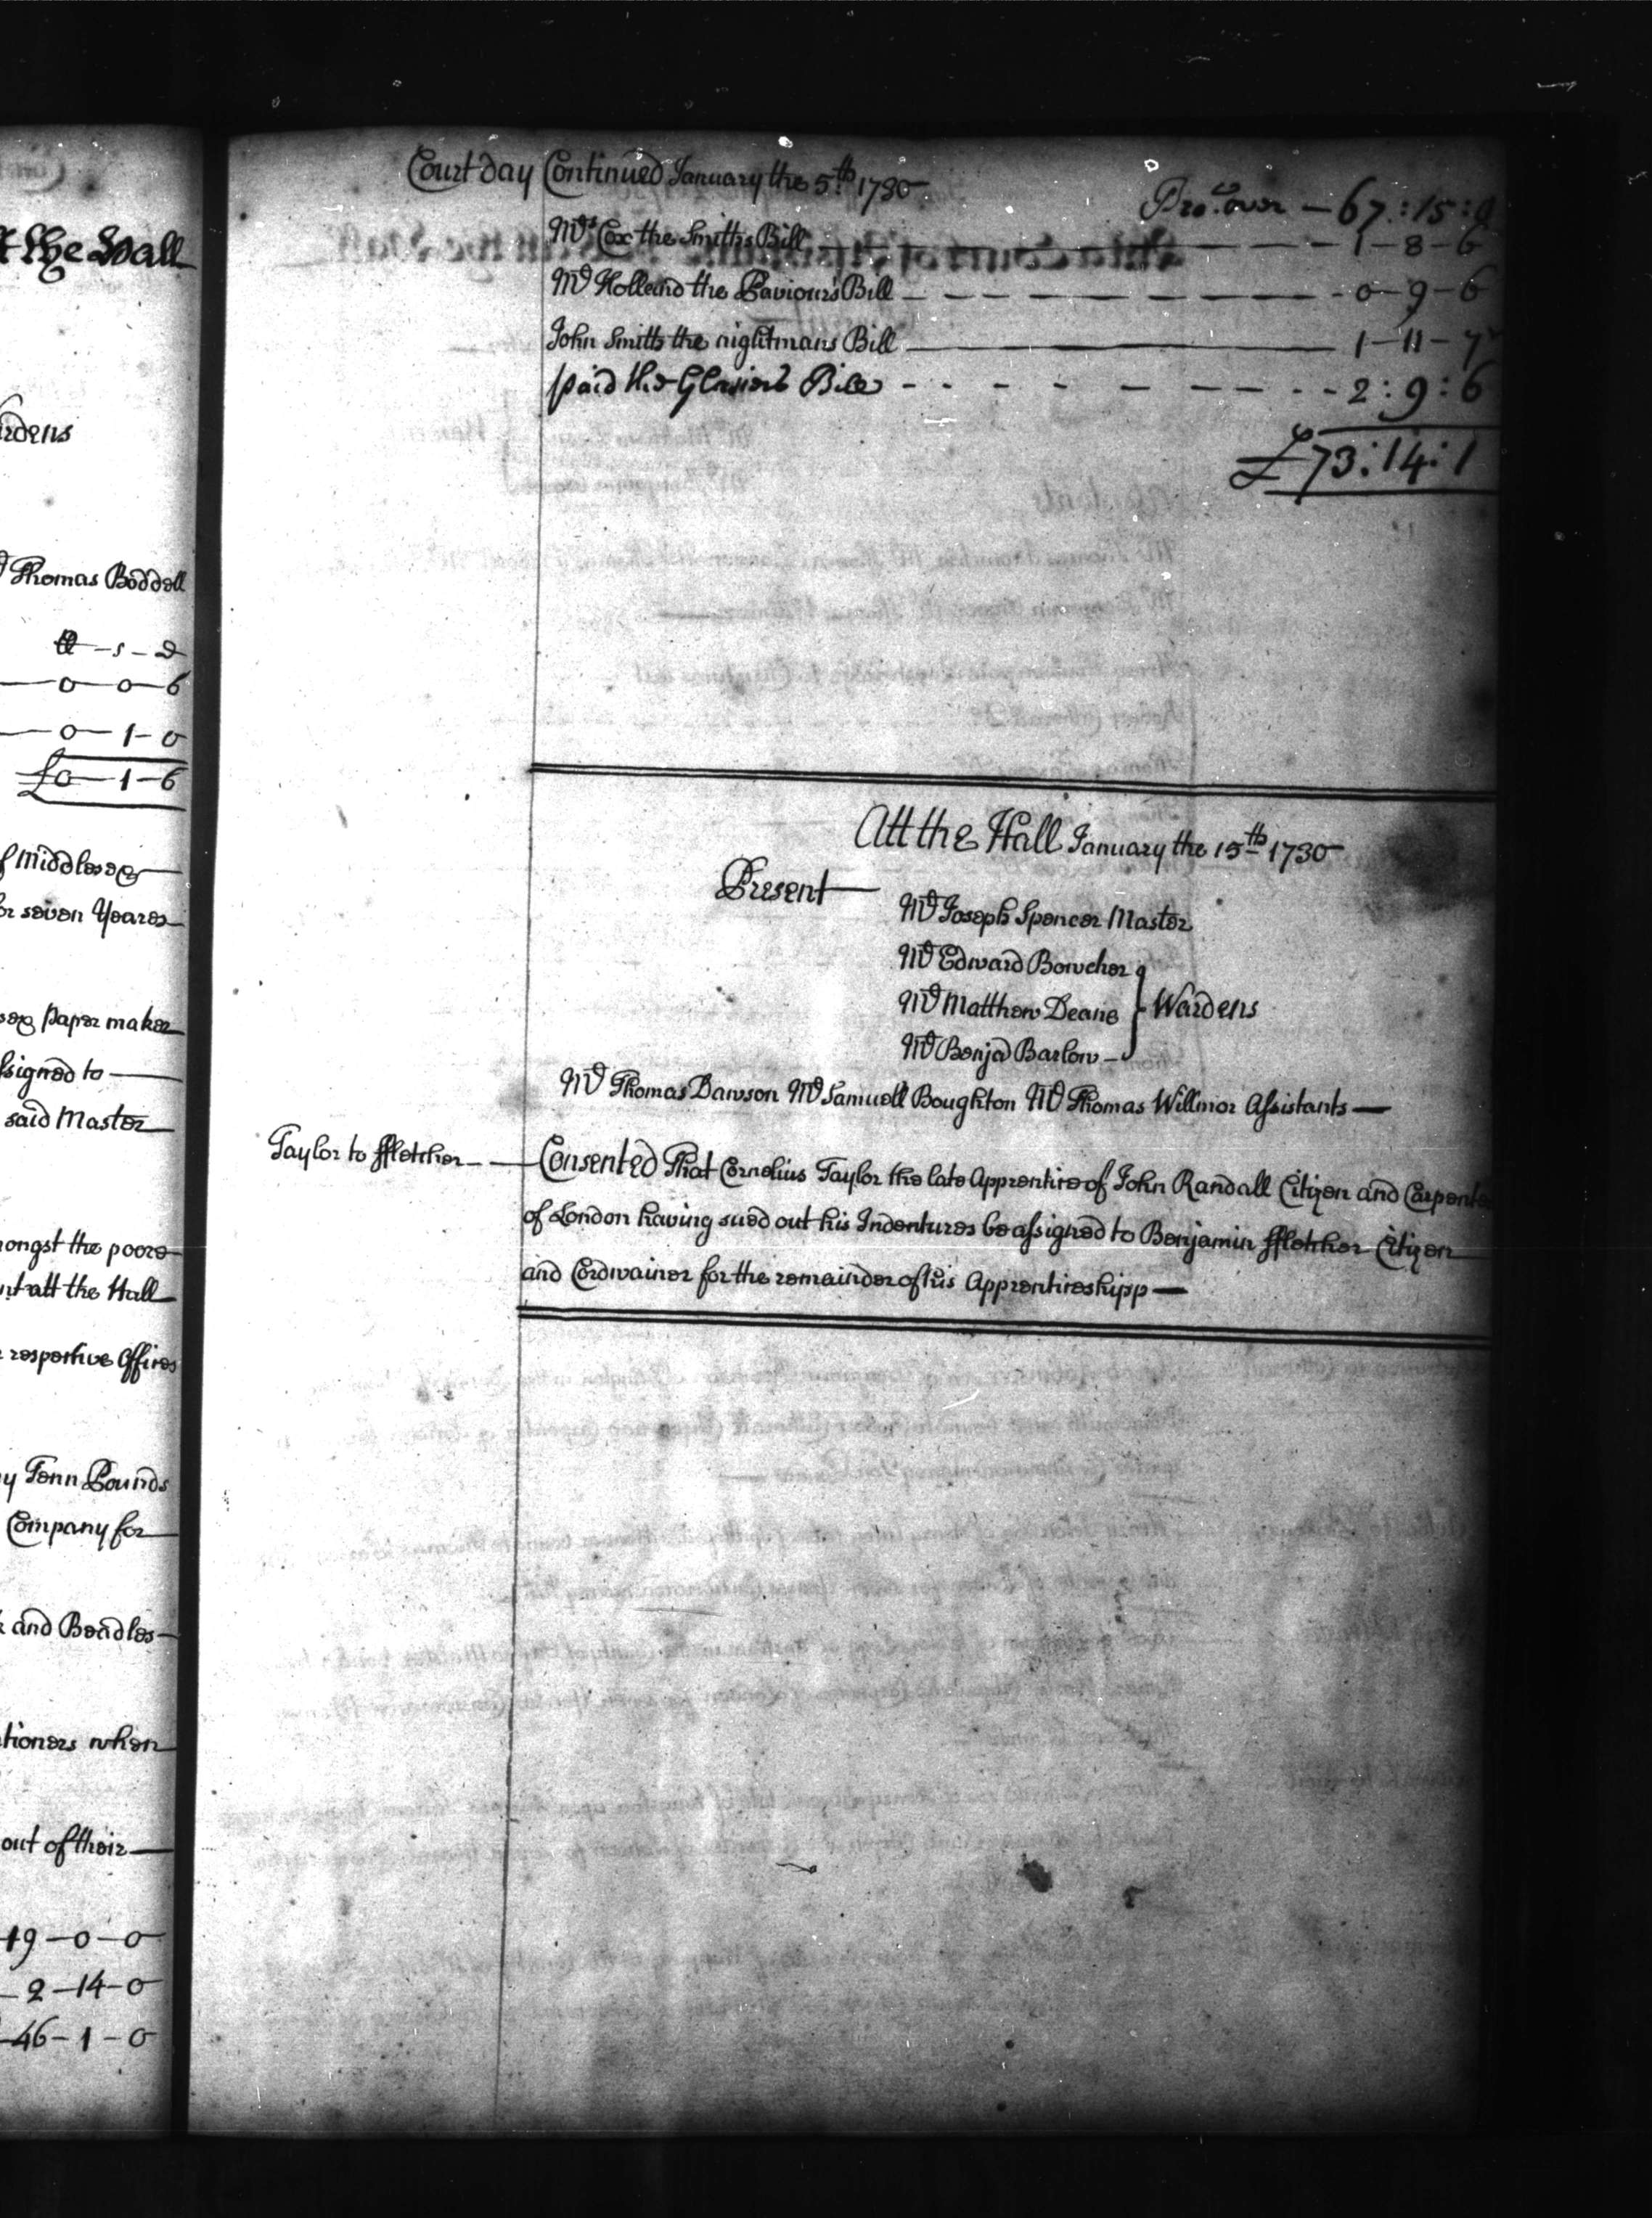 t the Hall
rdens
Thomas Boddell
ll - s - d
0 - 0 - 6
0 - 1 - 0
£0 - 1 - 6
f Middlesex
or seven Yeares
sex paper maker
ssigned to
said Master
mongst the poore
att the Hall
respective Offices
y Tenn Pounds
Company for
and Beadles
tioners when
out of their
19 - 0 - 0
2 - 14 - 0
46 - 1 - 0
Court day Continued January the 5th 1730
Bro:t over - 67 : 15 :
Mrs Cox the Smiths Bill - 1 - 8 - 6
Mr Holland the Paviours Bill - 0 - 9 - 6
John Smith the nightmans Bill - 1 - 11 - 7
paid the Glasiers Bill - 2 : 9 : 6
£73 : 14 : 1
Att the Hall January the 15th 1730
Present
Mr Joseph Spencer Master
Mr Edward Bowcher
Mr Matthew Deane } Wardens
Mr Benja Barlow
Mr Thomas Dawson Mr Samuell Boughton Mr Thomas Willmor Assistants
Taylor to ffletcher - Consented That Cornelius Taylor the late Apprentice of John Randall Citizen and Carpenter
of London having sued out his Indentures be assigned to Benjamin ffletcher Citizen
and Cordwainer for the remainder of his Apprenticeshipp